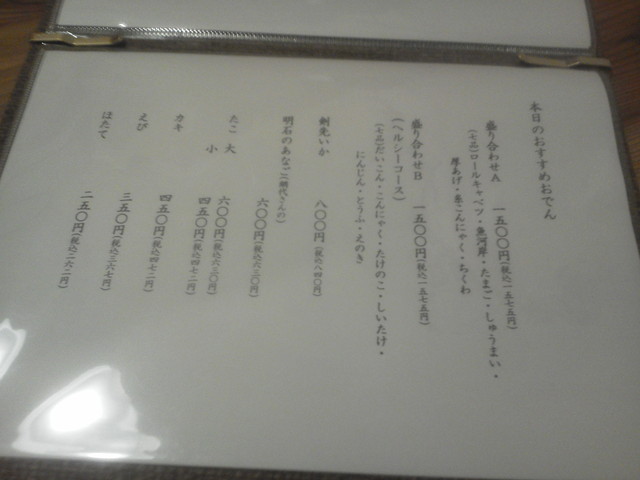 本日のおすすめおでん
盛り合わせA 一五〇〇円(税込一五七五円)
(七品)ロールキャベツ・魚河岸・たまご・しゅうまい・
厚あげ・糸こんにゃく・ちくわ
盛り合わせB 一五〇〇円(税込一五七五円)
(ヘルシーコース)
(七品)だいこん・こんにゃく・たけのこ・しいたけ・
にんじん・とうふ・えのき
剣先いか 八〇〇円(税込八四〇円)
明石のあなご(網代さんの)
六〇〇円(税込六三〇円)
たこ 大 六〇〇円(税込六三〇円)
小 四五〇円(税込四七二円)
カキ 四五〇円(税込四七二円)
えび 三五〇円(税込三六七円)
ほたて 二五〇円(税込二六二円)